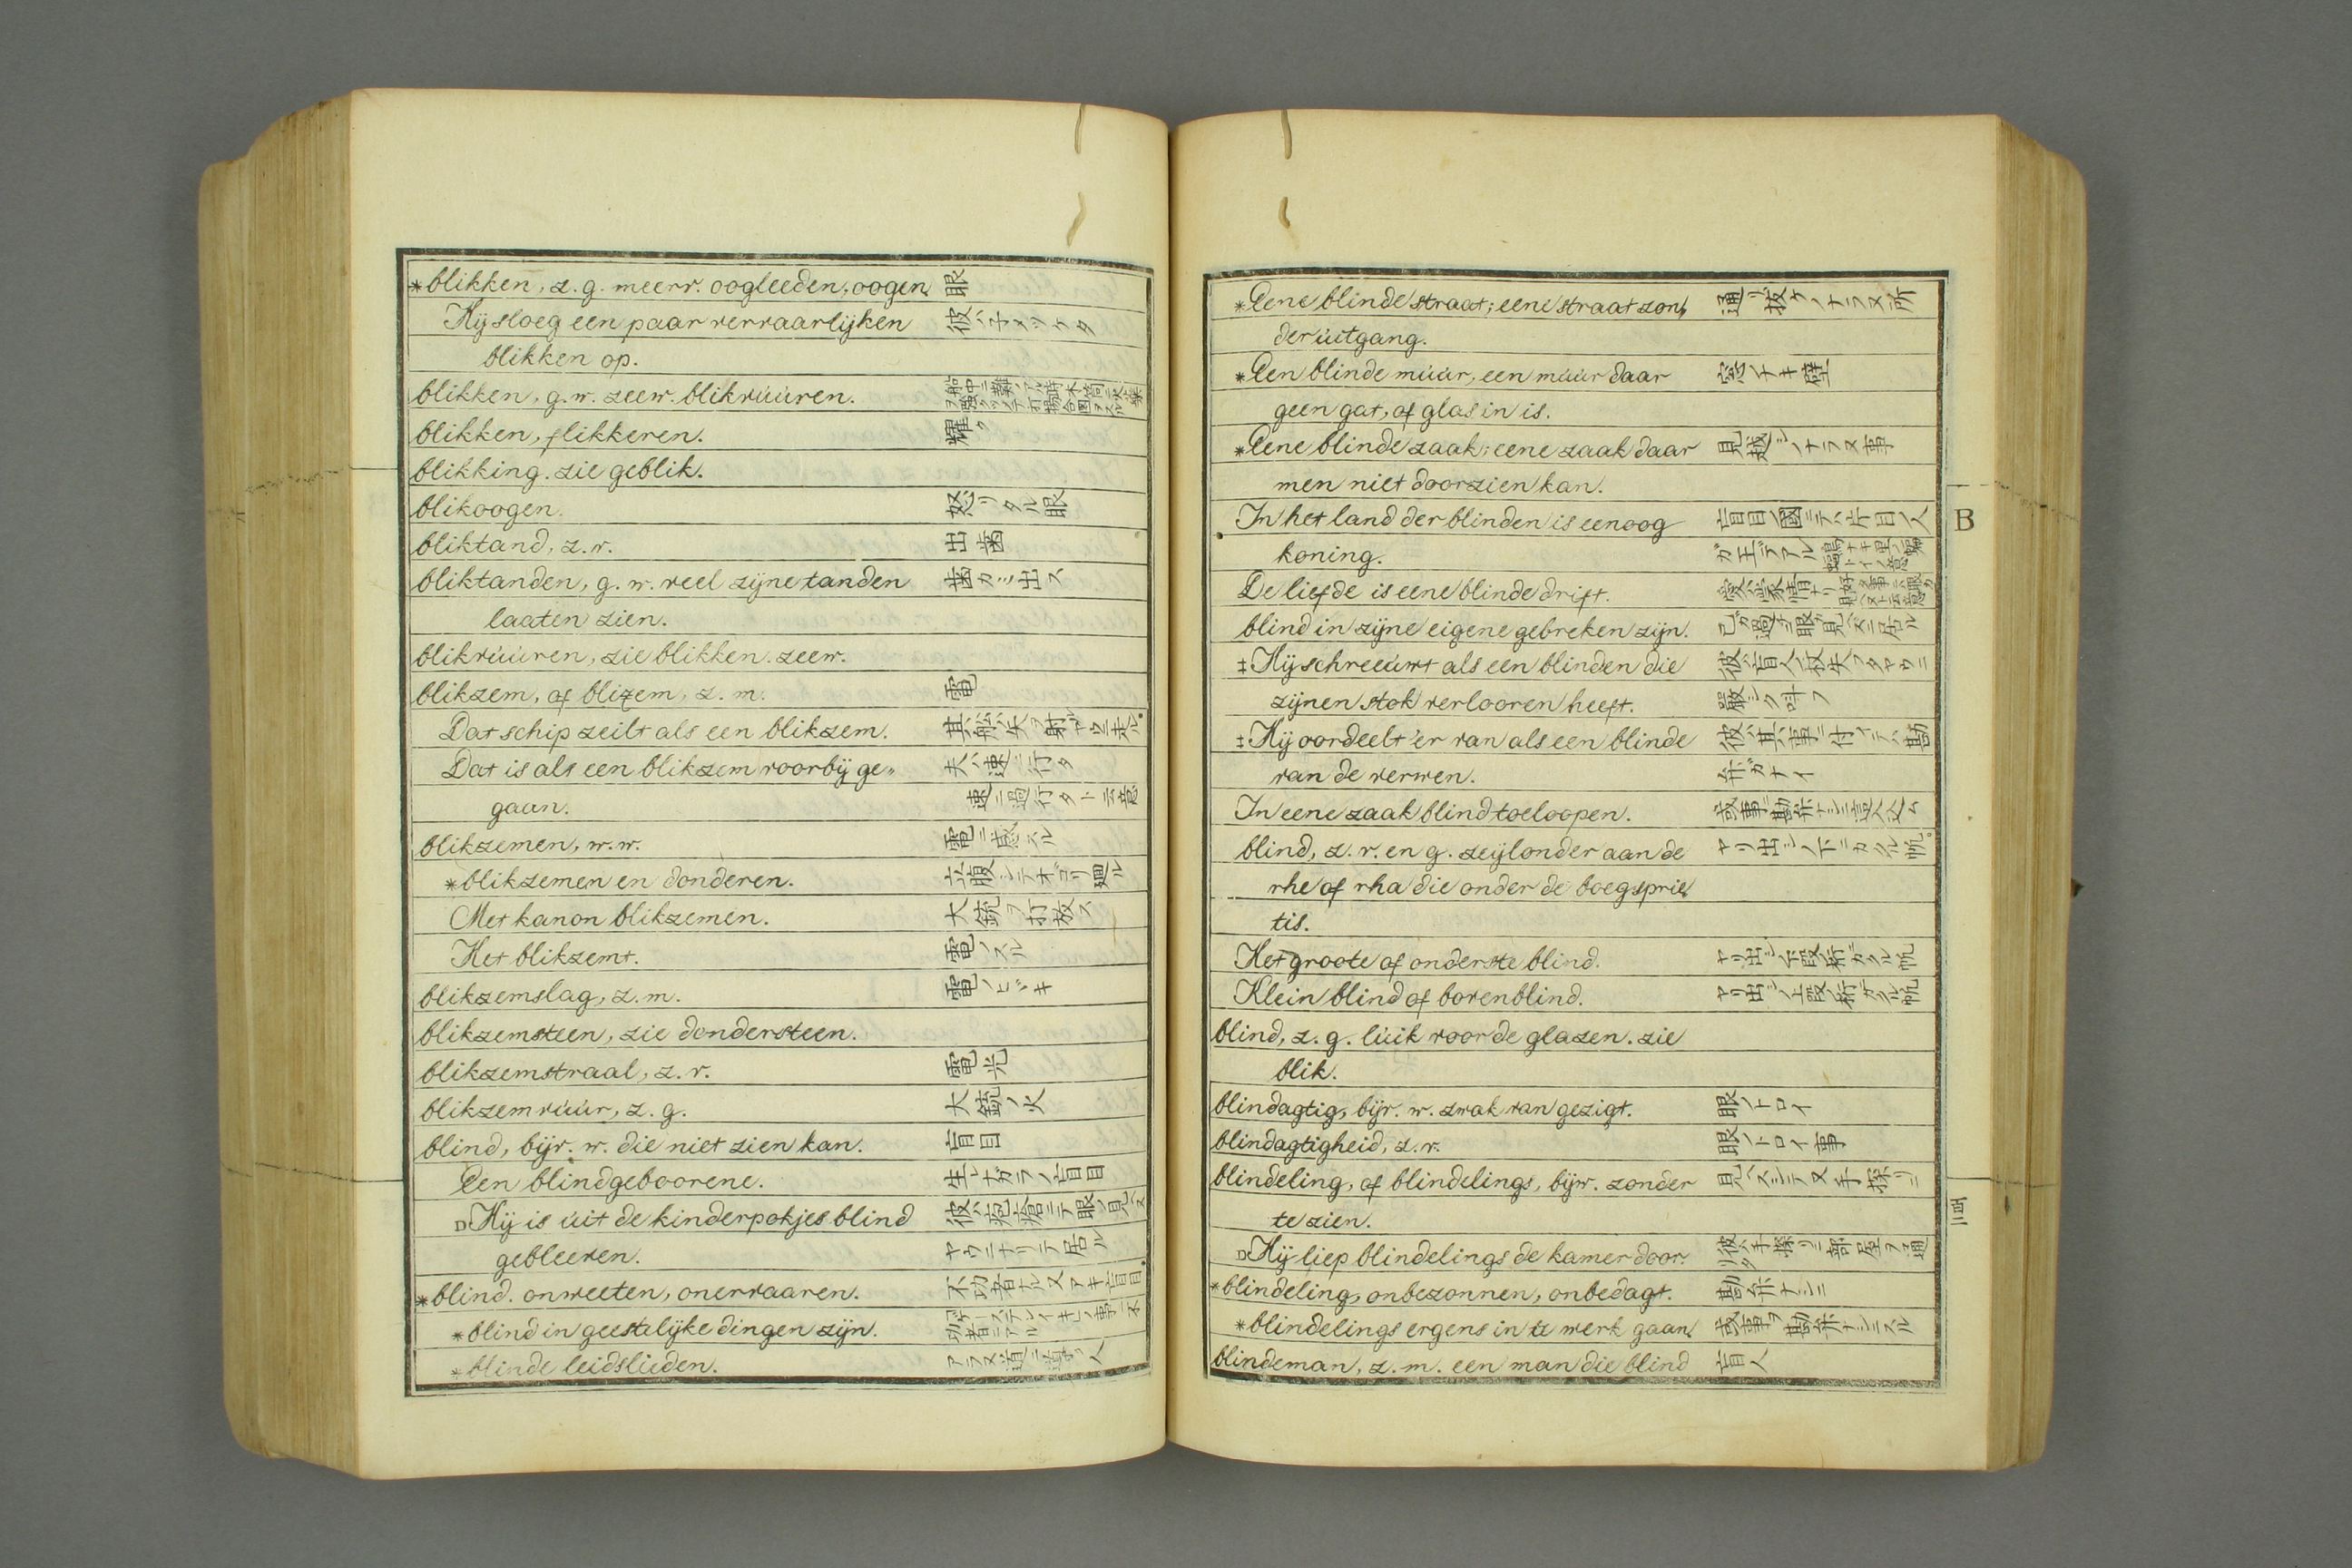 *blikken, z.g. meerv. oogleeden, oogen, 眼
Hij sloeg een paar vervaarlijken 彼ハ子メツケタ
blikken op.
blikken, g.w. zeew. blikvúúren.
blikken, flikkeren. 耀ク
blikking. zie geblik.
blikoogen. 怒リタル眼
bliktand, z.v. 出歯
bliktanden, g.w. veel zijne tanden 歯ガミ出ス
laaten zien.
blikvúúren, zie blikken. zeew.
blikzem, of blixem, z.m. 電
Dat schip zeilt als een blikzem.
Dat is als een blikzem voorbij ge„ 夫ハ速ニ行タ
gaan. 速ニ過行タト云意
blikzemen, w.w.
*blikzemen en donderen.
Met kanon blikzemen. 大銃ヲ打放ス
Het blikzemt. 電ノスル
blikzemslag, z.m. 電ノヒヾキ
blikzemsteen, zie dondersteen.
blikzemstraal, z.v. 電光
blikzemvúúr, z.g. 大銃ノ火
blind, bijv. w. die niet zien kan. 盲目
Een blindgeboorene. 生レナガラノ盲目
□Hij is úit de kinderpokjes blind 彼ハ疱瘡ニテ眼ノ見ヘヌ
gebleeven. ヤウニナリテ居ル
*blind. onweeten, onervaaren.
*blind in geestelijke dingen zijn.
*blinde leidslieden.
*Eene blinde straat; eene straat zon„ 通リ抜ケノナラヌ所
der úitgang.
*Een blinde múúr, een múúr daar 窓ノナキ壁
geen gat, of glas in is.
*Eene blinde zaak; eene zaak daar 見越シノナラヌ事
men niet doorzien kan.
In het land der blinden is eenoog 盲目ノ國ニテハ片目ノ人
koning. ガ王デアル
De liefde is eene blinde drift.
blind in zijne eigene gebreken zijn.
‡Hij schreeúwt als een blinden die
zijnen stok verlooren heeft. 嚴シク呌フ
‡Hij oordeelt 'er van als een blinde 彼ハ其事ニ付イテハ勘
van de verwen. 弁ガナイ
In eene zaak blind toeloopen.
blind, z.v. en g. zeijl onder aan de ヤリ出シノ下ニカクル帆。
rhe of rha die onder de boegsprie„
t is.
Het groote of onderste blind. ヤリ出シノ下段ノ桁ニカクル帆
Klein blind of bovenblind. ヤリ出シノ上段ノ桁ニカクル帆
blind, z.g. lúik voor de glazen. zie
blik.
blindagtig, bijv. w. zwak van gezigt. 眼ノトロイ
blindagtigheid, z.v. 眼ノトロイ事
blindeling, of blindelings, bijw. zonder
te zien.
□Hij liep blindelings de kamer door. 彼ハ手探リニ部屋ヲ通リタ
*blindeling, onbezonnen, onbedagt. 勘弁ナシニ
*blindelings ergens in te werk gaan. 或事ヲ勘弁ナシニスル
blindeman, z.m. een man die blind 盲人
B